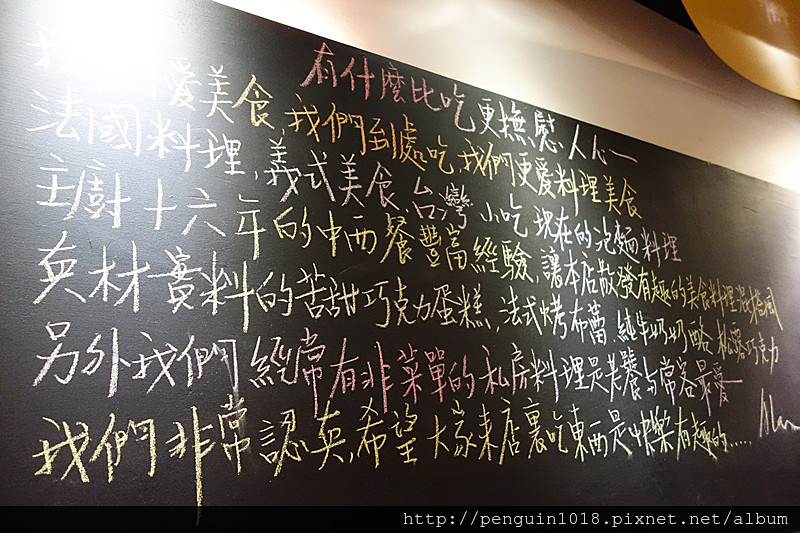 有什麼比吃更撫慰人心
我們愛美食,我們到處吃,我們更愛料理美食
法國料理,義式美食,台灣小吃 現在的泡麵料理
主廚十六年的中西餐豐富經驗,讓本店散發有趣的美食料理混搭風
真材實料的苦甜巧克力蛋糕,法式烤布蕾,純牛奶奶酪 松露巧克力
另外我們經常有非菜單的私房料理是老饕与常客最愛
我們非常認真,希望大家來店裏吃東西是快樂有趣的.....
Alan
http://penguin1018.pixnet.net/album